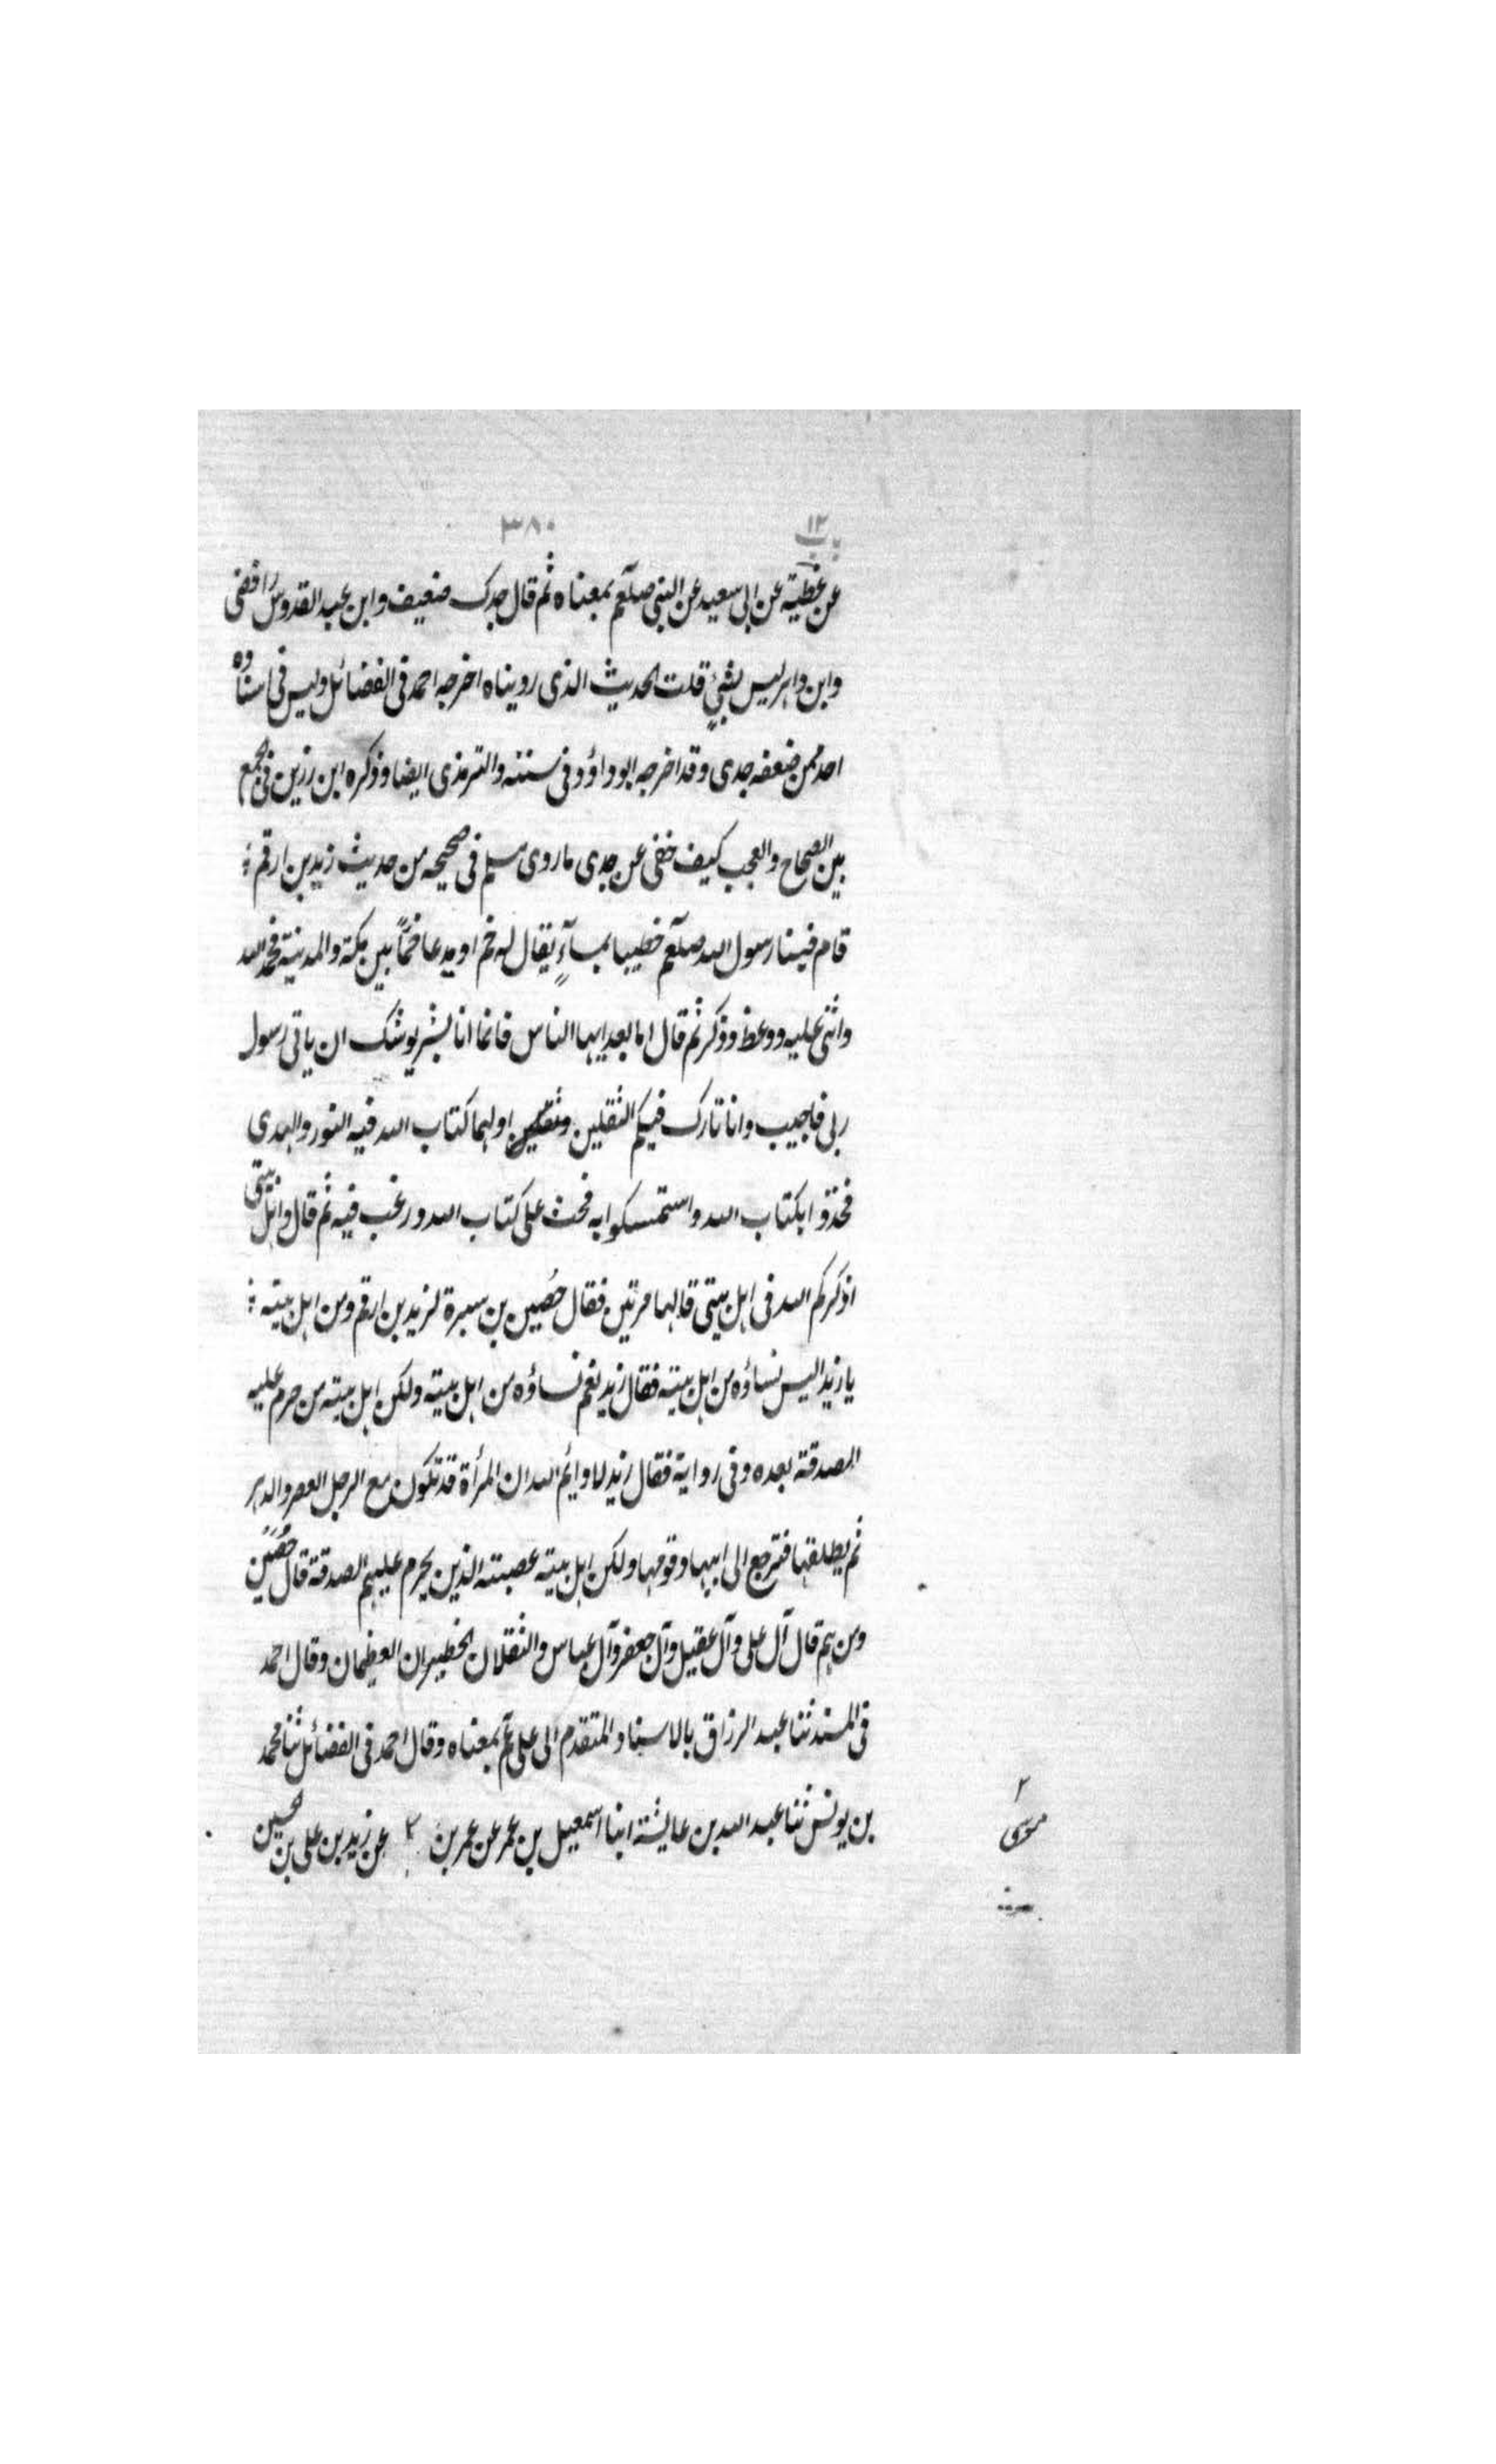 باب ١٢
٣٨٠
عن عطية عن ابى سعيد عن النبى صلعم بمعناه ثم قال جدك ضعيف وابن عبد القدوس رافضى
وابن داهر ليس بشىءٍ قلت الحديث الذى رويناه اخرجه احمد فى الفضائل وليس فى اسناده
احد ممن ضعفه جدى وقد اخرجه ابو داؤد فى سننه والترمذى ايضا وذكره ابن رزين فى الجمع
بين الصحاح والعجب كيف خفى عن جدى ما روى مسلم فى صحيحه من حديث زيد بن ارقم
قام فينا رسول الله صلعم خطيبا بمآءٍ يقال له خم او يدعا خمّاً بين مكة والمدينة فحمد الله
واثنى عليه ووعظ وذكر ثم قال اما بعد ايها الناس فانما انا بشر يوشك ان ياتى رسول
ربى فاجيب وانا تارك فيكم الثقلين اولهما كتاب الله فيه النور والهدى
فخذوا بكتاب الله واستمسكوا به فحث على كتاب الله ورغب فيه ثم قال واهل بيتى
اذكركم الله فى اهل بيتى قالها مرتين فقال حُصين بن سبرة لزيد بن ارقم ومن اهل بيته
يا زيد اليس نساؤه من اهل بيته فقال زيد نعم نساؤه من اهل بيته ولكن اهل بيته من حرم عليه
الصدقة بعده وفى رواية فقال زيد لا وايم الله ان المرأة قد تكون مع الرجل العصر والدهر
ثم يطلقها فترجع الى ابيها وقومها ولكن اهل بيته عصبته الذين يحرم عليهم الصدقة قال حُصين
ومن هم قال آل على وآل عقيل وآل جعفر وآل عباس والثقلان الخطيران العظيمان وقال احمد
فى المسند ثنا عبد الرزاق بالاسناد المتقدم الى على عم بمعناه وقال احمد فى الفضائل ثنا محمد
بن يونس ثنا عبد الله بن عايشة ابنا اسمعيل بن عمر عن عمر بن ٢ عن زيد بن على بن الحسين
٢
موسى